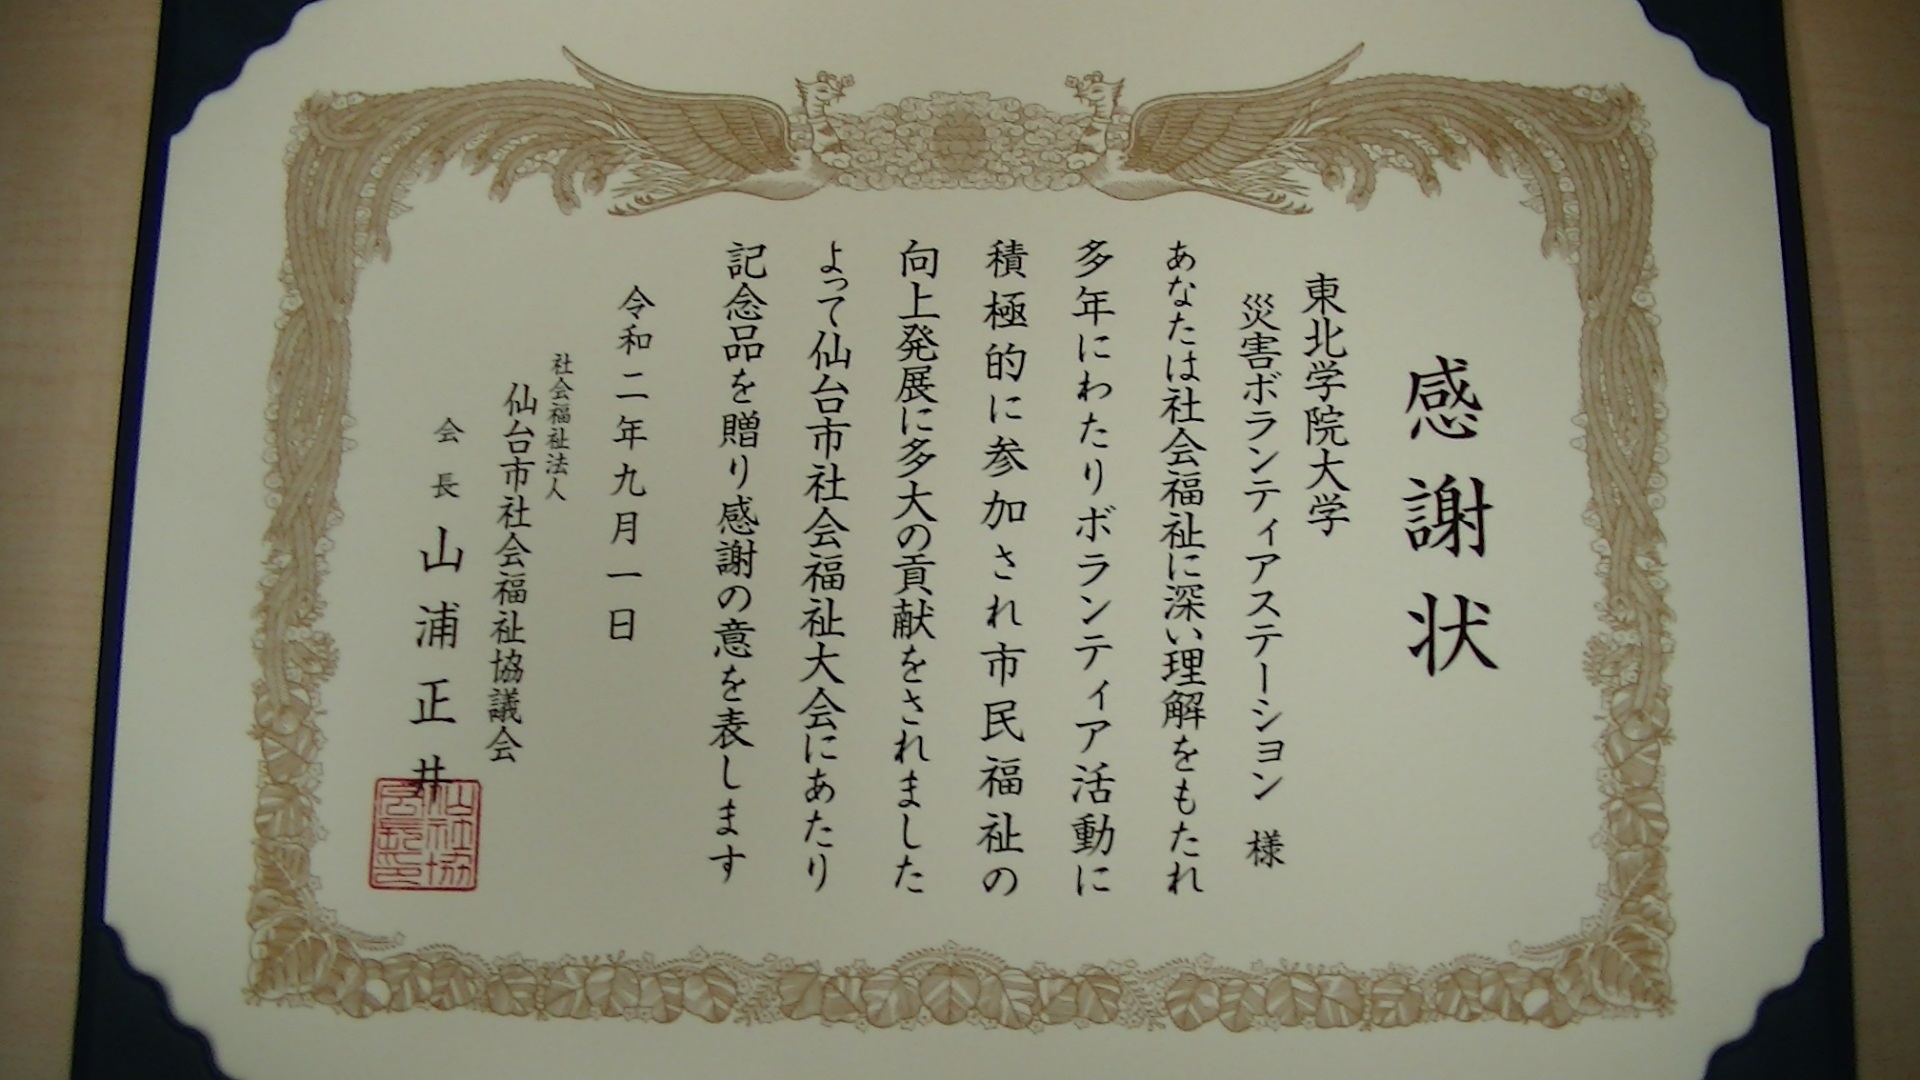 感謝状
東北学院大学
災害ボランティアステーション 様
あなたは社会福祉に深い理解をもたれ
多年にわたりボランティア活動に
積極的に参加され市民福祉の
向上発展に多大の貢献をされました
よって仙台市社会福祉大会にあたり
記念品を贈り感謝の意を表します
令和二年九月一日
社会福祉法人
仙台市社会福祉協議会
会長 山浦正井
仙社協
会長印